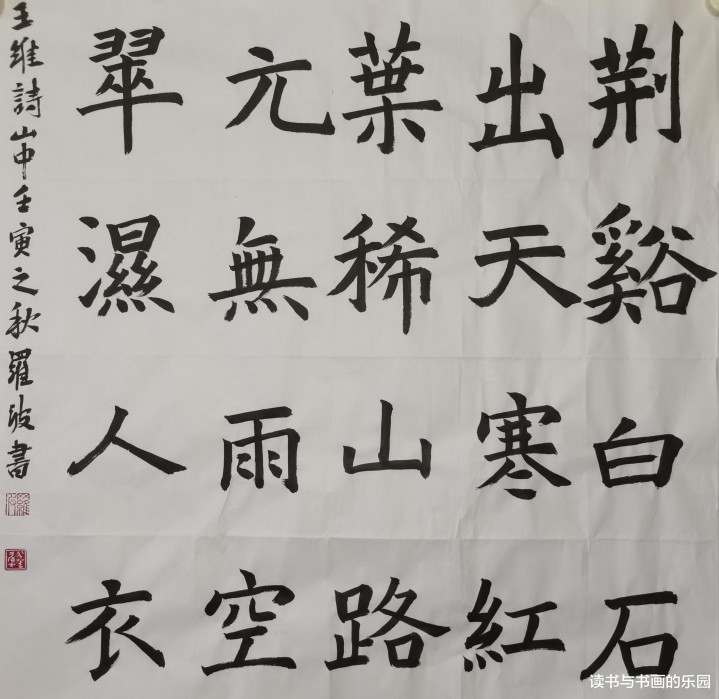 荆谿白石
出天寒紅
葉稀山路
亢無雨空
翠濕人衣
王維詩山中壬寅之秋羅波書
读书与书画的乐园